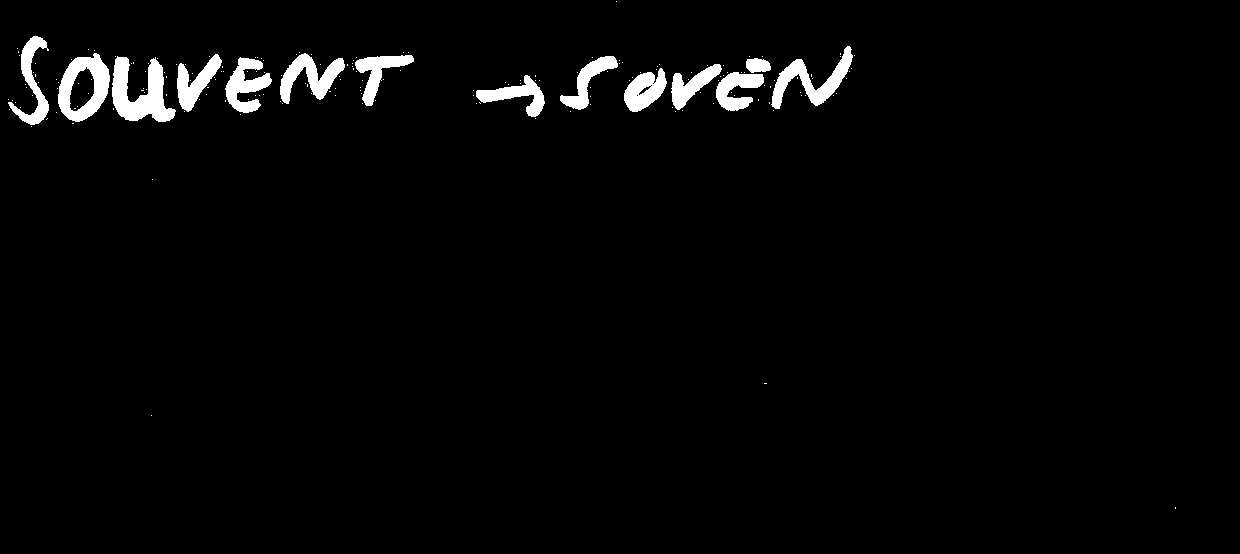 SOUVENT → SOVEN